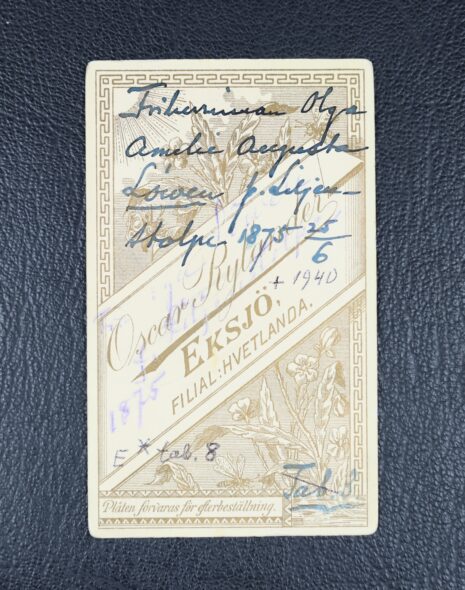 Friherrinnan Olga
Amelie Augusta
Löwen f. Liljen-
stolpe 1875 25/6
+ 1940
Oscar Rylander
EKSJÖ,
FILIAL: HVETLANDA.
1875
E* tab. 8
Tab 8
Plåten förvaras för efterbeställning.